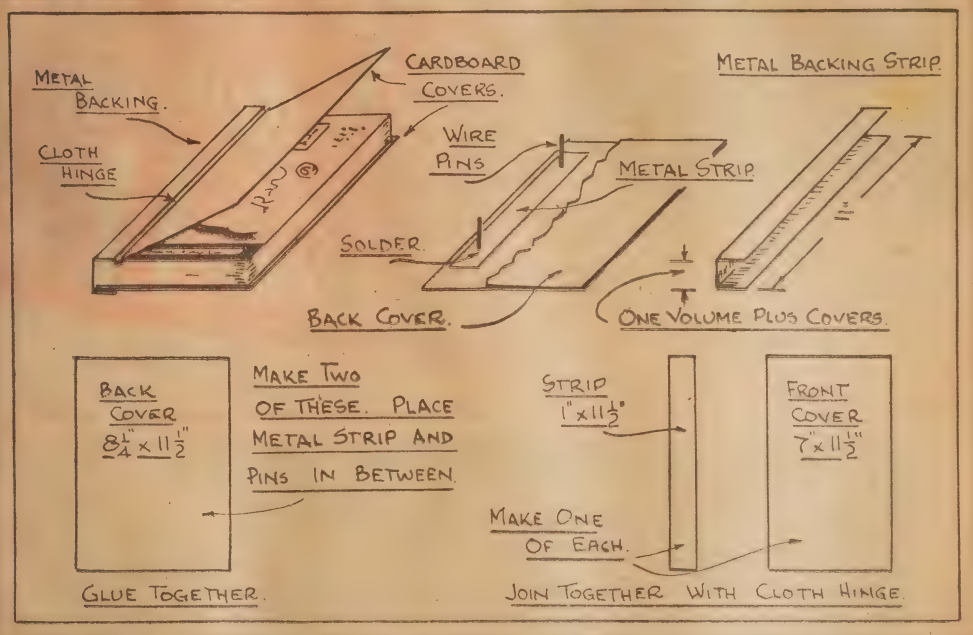 METAL
BACKING.
CLOTH
HINGE
CARDBOARD
COVERS.
WIRE
PINS
METAL STRIP.
SOLDER.
BACK COVER.
METAL BACKING STRIP.
11"
ONE VOLUME PLUS COVERS.
BACK
COVER
8 1/4" x 11 1/2"
MAKE TWO
OF THESE. PLACE
METAL STRIP AND
PINS IN BETWEEN.
GLUE TOGETHER.
STRIP
1" x 11 1/2"
FRONT
COVER
7" x 11 1/2"
MAKE ONE
OF EACH.
JOIN TOGETHER WITH CLOTH HINGE.